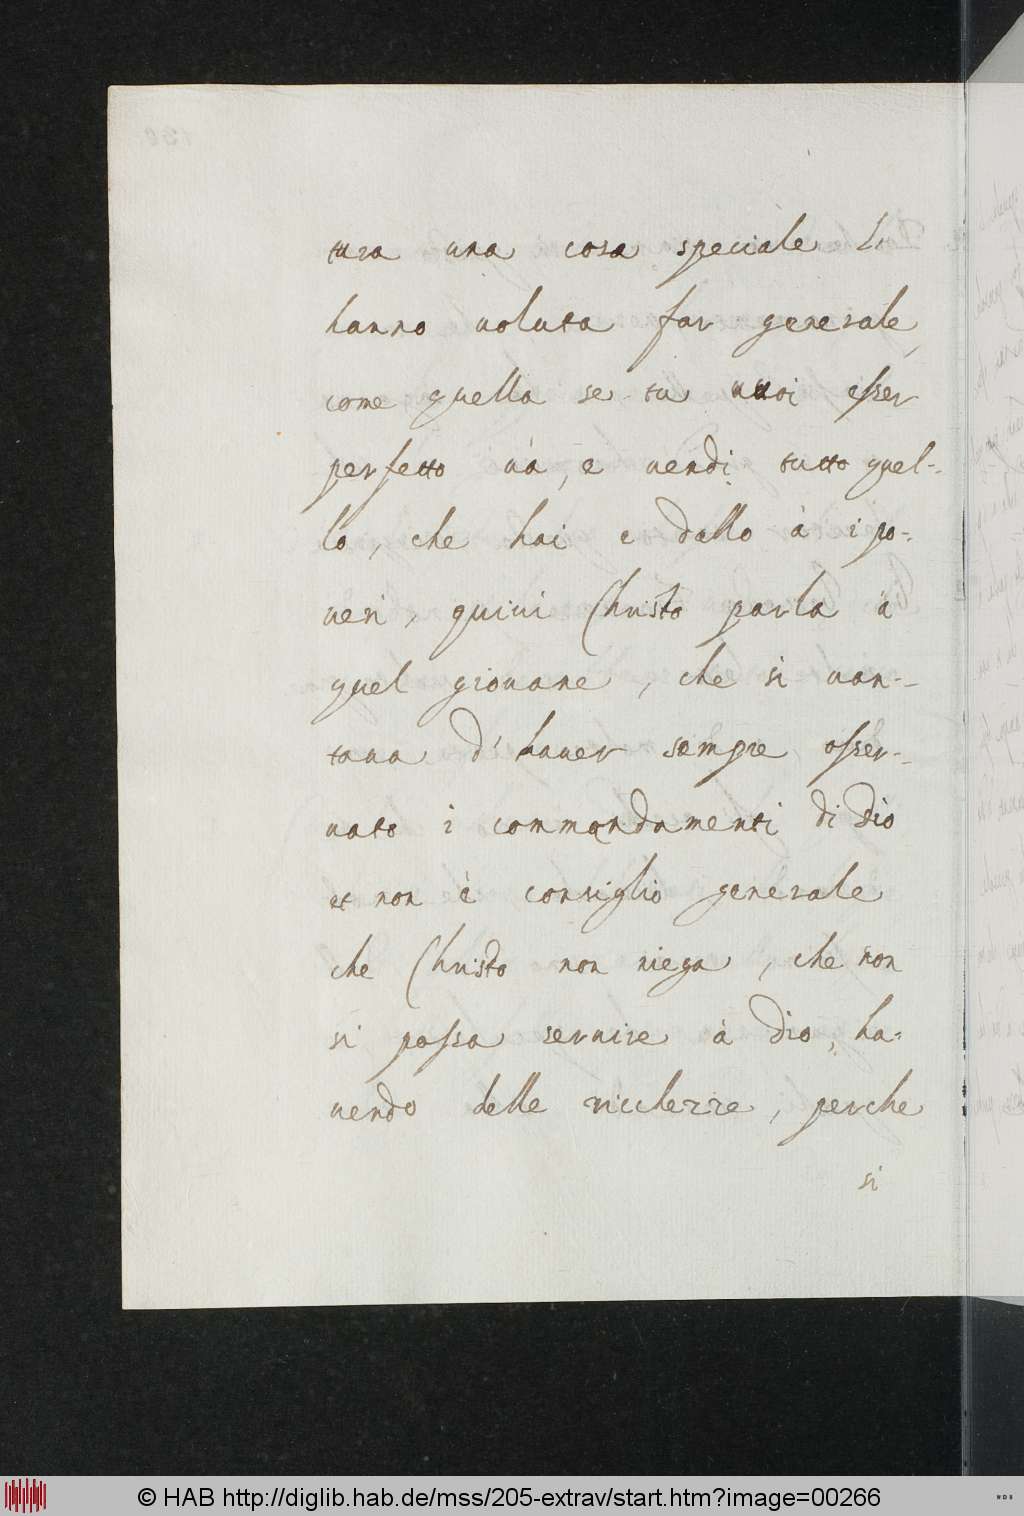 tura una cosa speciale li
hanno uoluta far generale,
come quella se tu uuoi esser
perfetto uà, e uendi tutto quel-
lo, che hai e dallo à i po-
ueri, quiui Christo parla à
quel giouane, che si uan-
taua d'hauer sempre osser-
uato i commandamenti di Dio
et non è consiglio generale
che Christo non niega, che non
si possa seruire à Dio, ha-
uendo delle ricchezze, perche
si
© HAB http://diglib.hab.de/mss/205-extrav/start.htm?image=00266